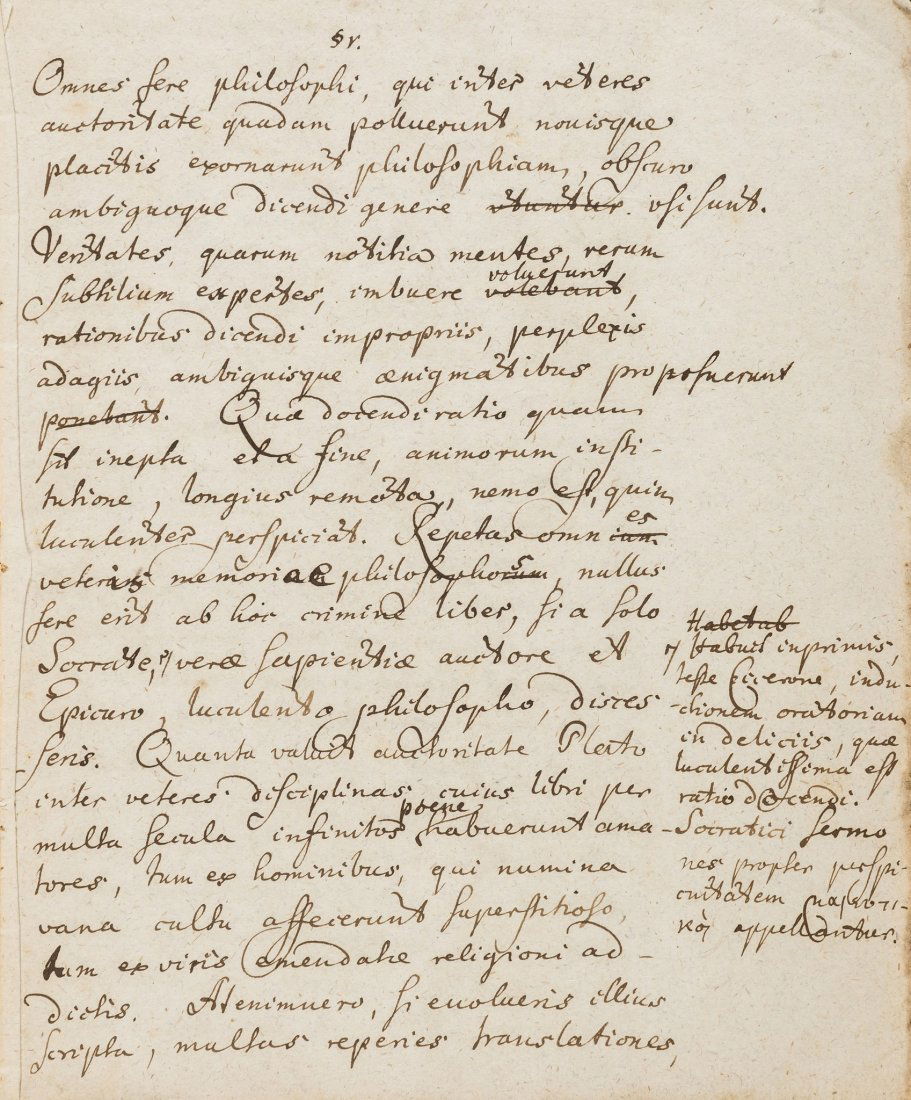 § V.
Omnes fere philosophi, qui inter veteres
auctoritate quadam polluerunt nouisque
placitis exornarunt philosophiam, obscuro
ambiguoque dicendi genere utuntur. vsi sunt.
Veritates, quarum notitia mentes, rerum
voluerunt
subtilium expertes, imbuere volebant,
rationibus dicendi impropriis, perplexis
adagiis, ambiguisque ænigmatibus proposuerunt
ponebant. Quæ docendi ratio quam
sit inepta et a fine, animorum insti-
tutione, longius remota, nemo est, quin
luculenter perspiciat. Repetas omnium
es
veteris memoriae philosophorum, nullus
s
fere erit ab hoc crimine liber, si a solo
Socrate, veræ sapientiæ auctore et
Epicuro, luculento philosopho, disces
seris. Quanta valuit auctoritate Plato
inter veteres disciplinas, cuius libri per
poene
multa secula infinitos habuerunt ama-
tores, tum ex hominibus, qui numina
vana cultu affecerunt superstitioso,
tum ex viris emendatæ religioni ad-
dictis. Atenimuero, si euolueris illius
scripta, multas reperies translationes,
Habetab
Habuit inprimis,
teste Cicerone, indu-
ctionem oratoriam
in deliciis, quæ
luculentissima est
ratio docendi.
Socratici sermo
nes propter perspi-
cuitatem
appellantur.